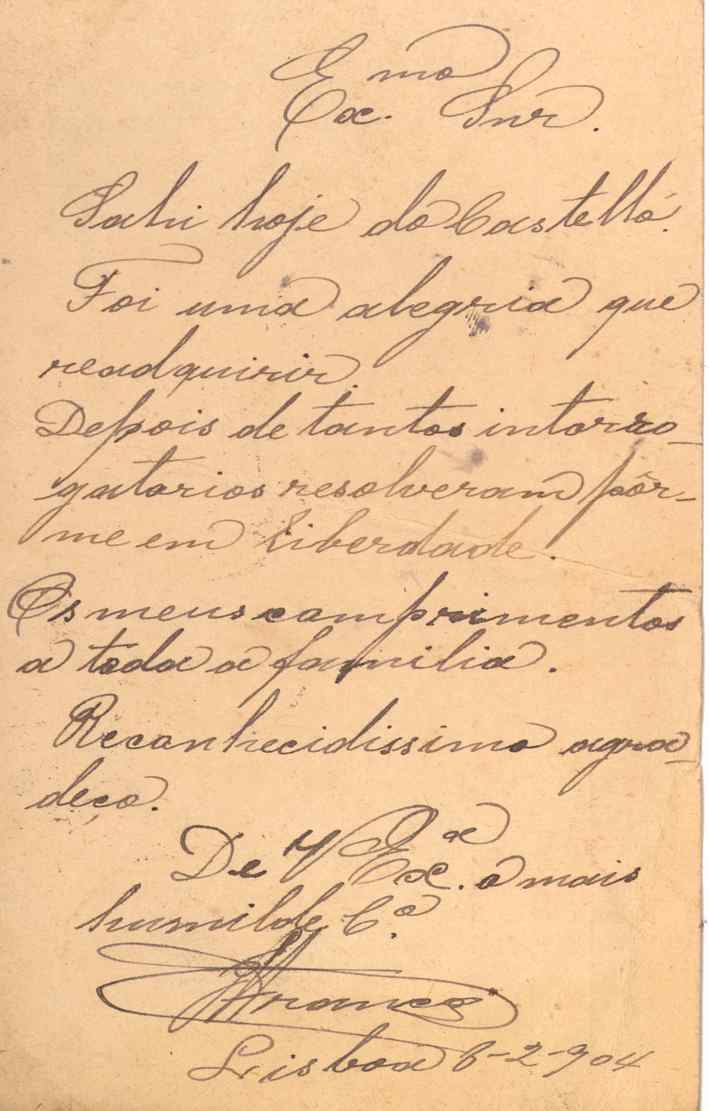 Exmo
Ex. Snr.
Sahi hoje do Castello.
Foi uma alegria que
readquirir
Depois de tantos intorro-
gatorios resolveram pôr-
me em liberdade.
Os meus comprimentos
a toda a familia.
Reconhecidissimo agra-
deço.
De V Exª. o mais
humilde C.º
Franco
Lisboa 6-2-904